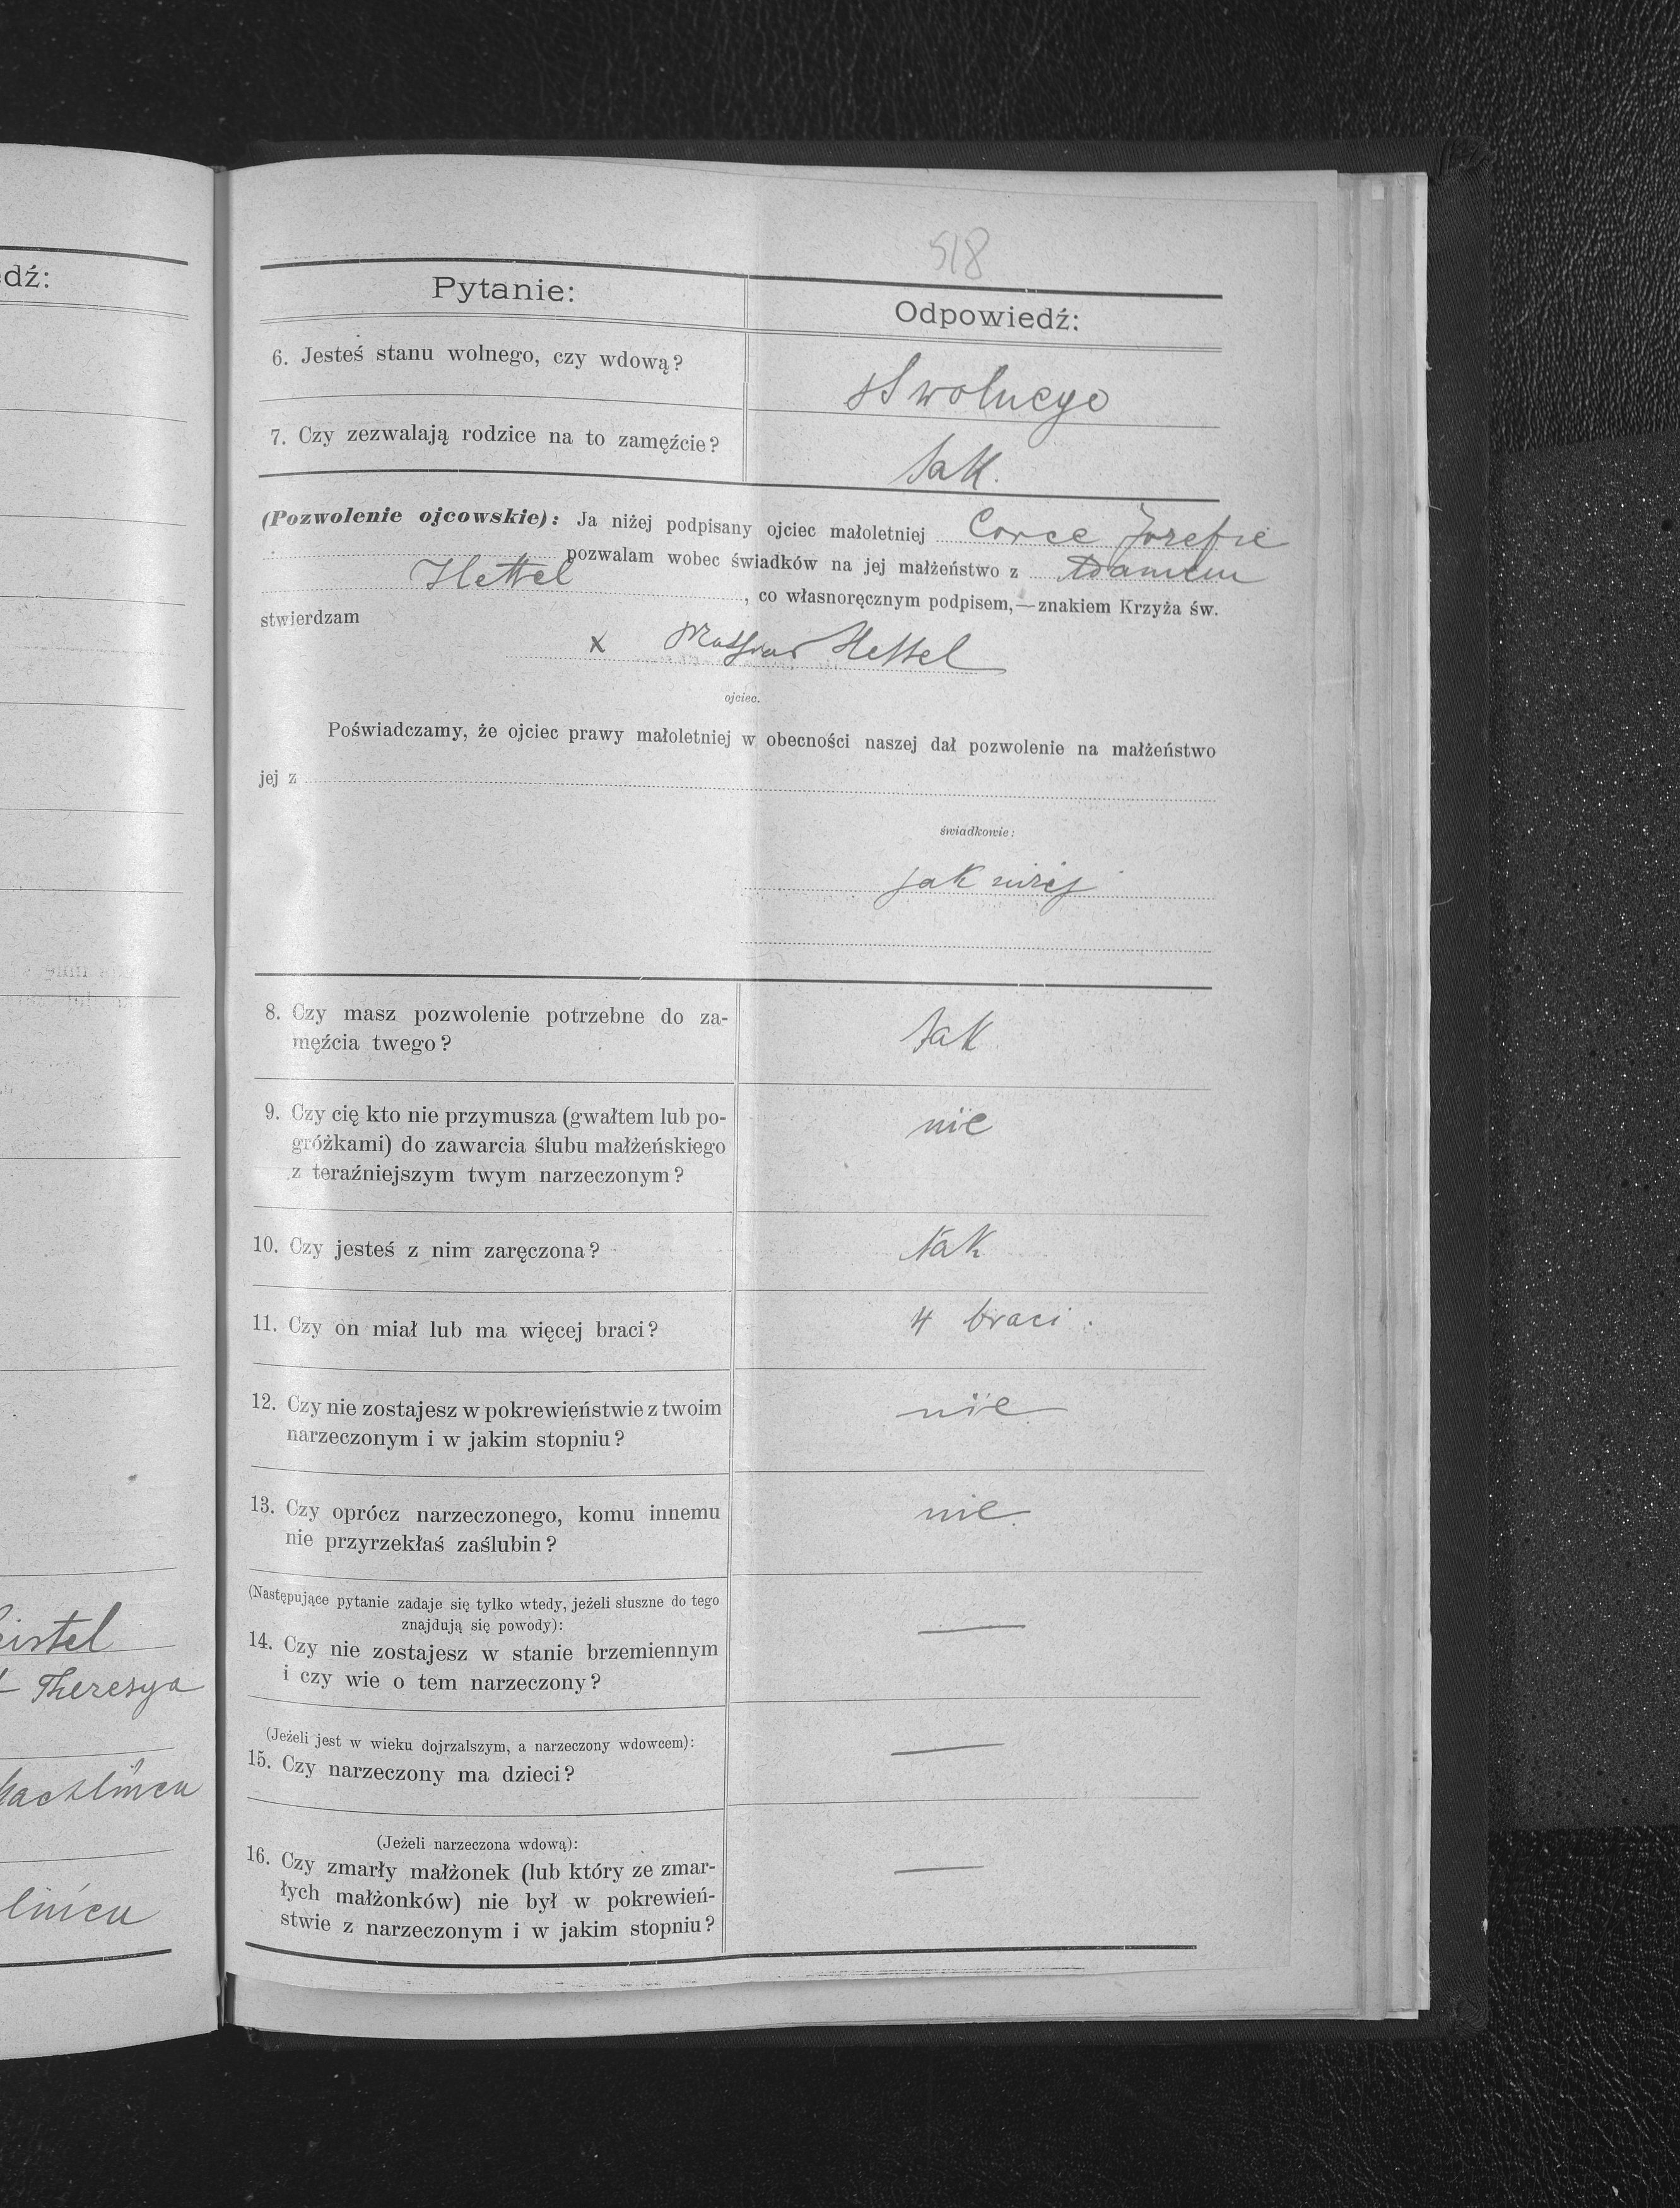 edź:
eistel
Theresya
lnicu
518
Pytanie:
Odpowiedź:
6. Jesteś stanu wolnego, czy wdową?
st wolnego
7. Czy zezwalają rodzice na to zamęźcie?
tak.
(Pozwolenie ojcowskie): Ja niżej podpisany ojciec małoletniej Corce Jozefie
pozwalam wobec świadków na jej małżeństwo z Adamem
Hettel , co własnoręcznym podpisem,—znakiem Krzyża św.
stwierdzam
x Mathias Hettel
ojciec.
Poświadczamy, że ojciec prawy małoletniej w obecności naszej dał pozwolenie na małżeństwo
jej z
świadkowie:
jak niżej
8. Czy masz pozwolenie potrzebne do za-
męźcia twego?
tak
9. Czy cię kto nie przymusza (gwałtem lub po-
gróżkami) do zawarcia ślubu małżeńskiego
z teraźniejszym twym narzeczonym?
nie
10. Czy jesteś z nim zaręczona?
tak
11. Czy on miał lub ma więcej braci?
4 braci.
12. Czy nie zostajesz w pokrewieństwie z twoim
narzeczonym i w jakim stopniu?
nie
13. Czy oprócz narzeczonego, komu innemu
nie przyrzekłaś zaślubin?
nie.
(Następujące pytanie zadaje się tylko wtedy, jeżeli słuszne do tego
znajdują się powody):
14. Czy nie zostajesz w stanie brzemiennym
i czy wie o tem narzeczony?
—
(Jeżeli jest w wieku dojrzalszym, a narzeczony wdowcem):
15. Czy narzeczony ma dzieci?
—
(Jeżeli narzeczona wdową):
16. Czy zmarły małżonek (lub który ze zmar-
łych małżonków) nie był w pokrewień-
stwie z narzeczonym i w jakim stopniu?
—